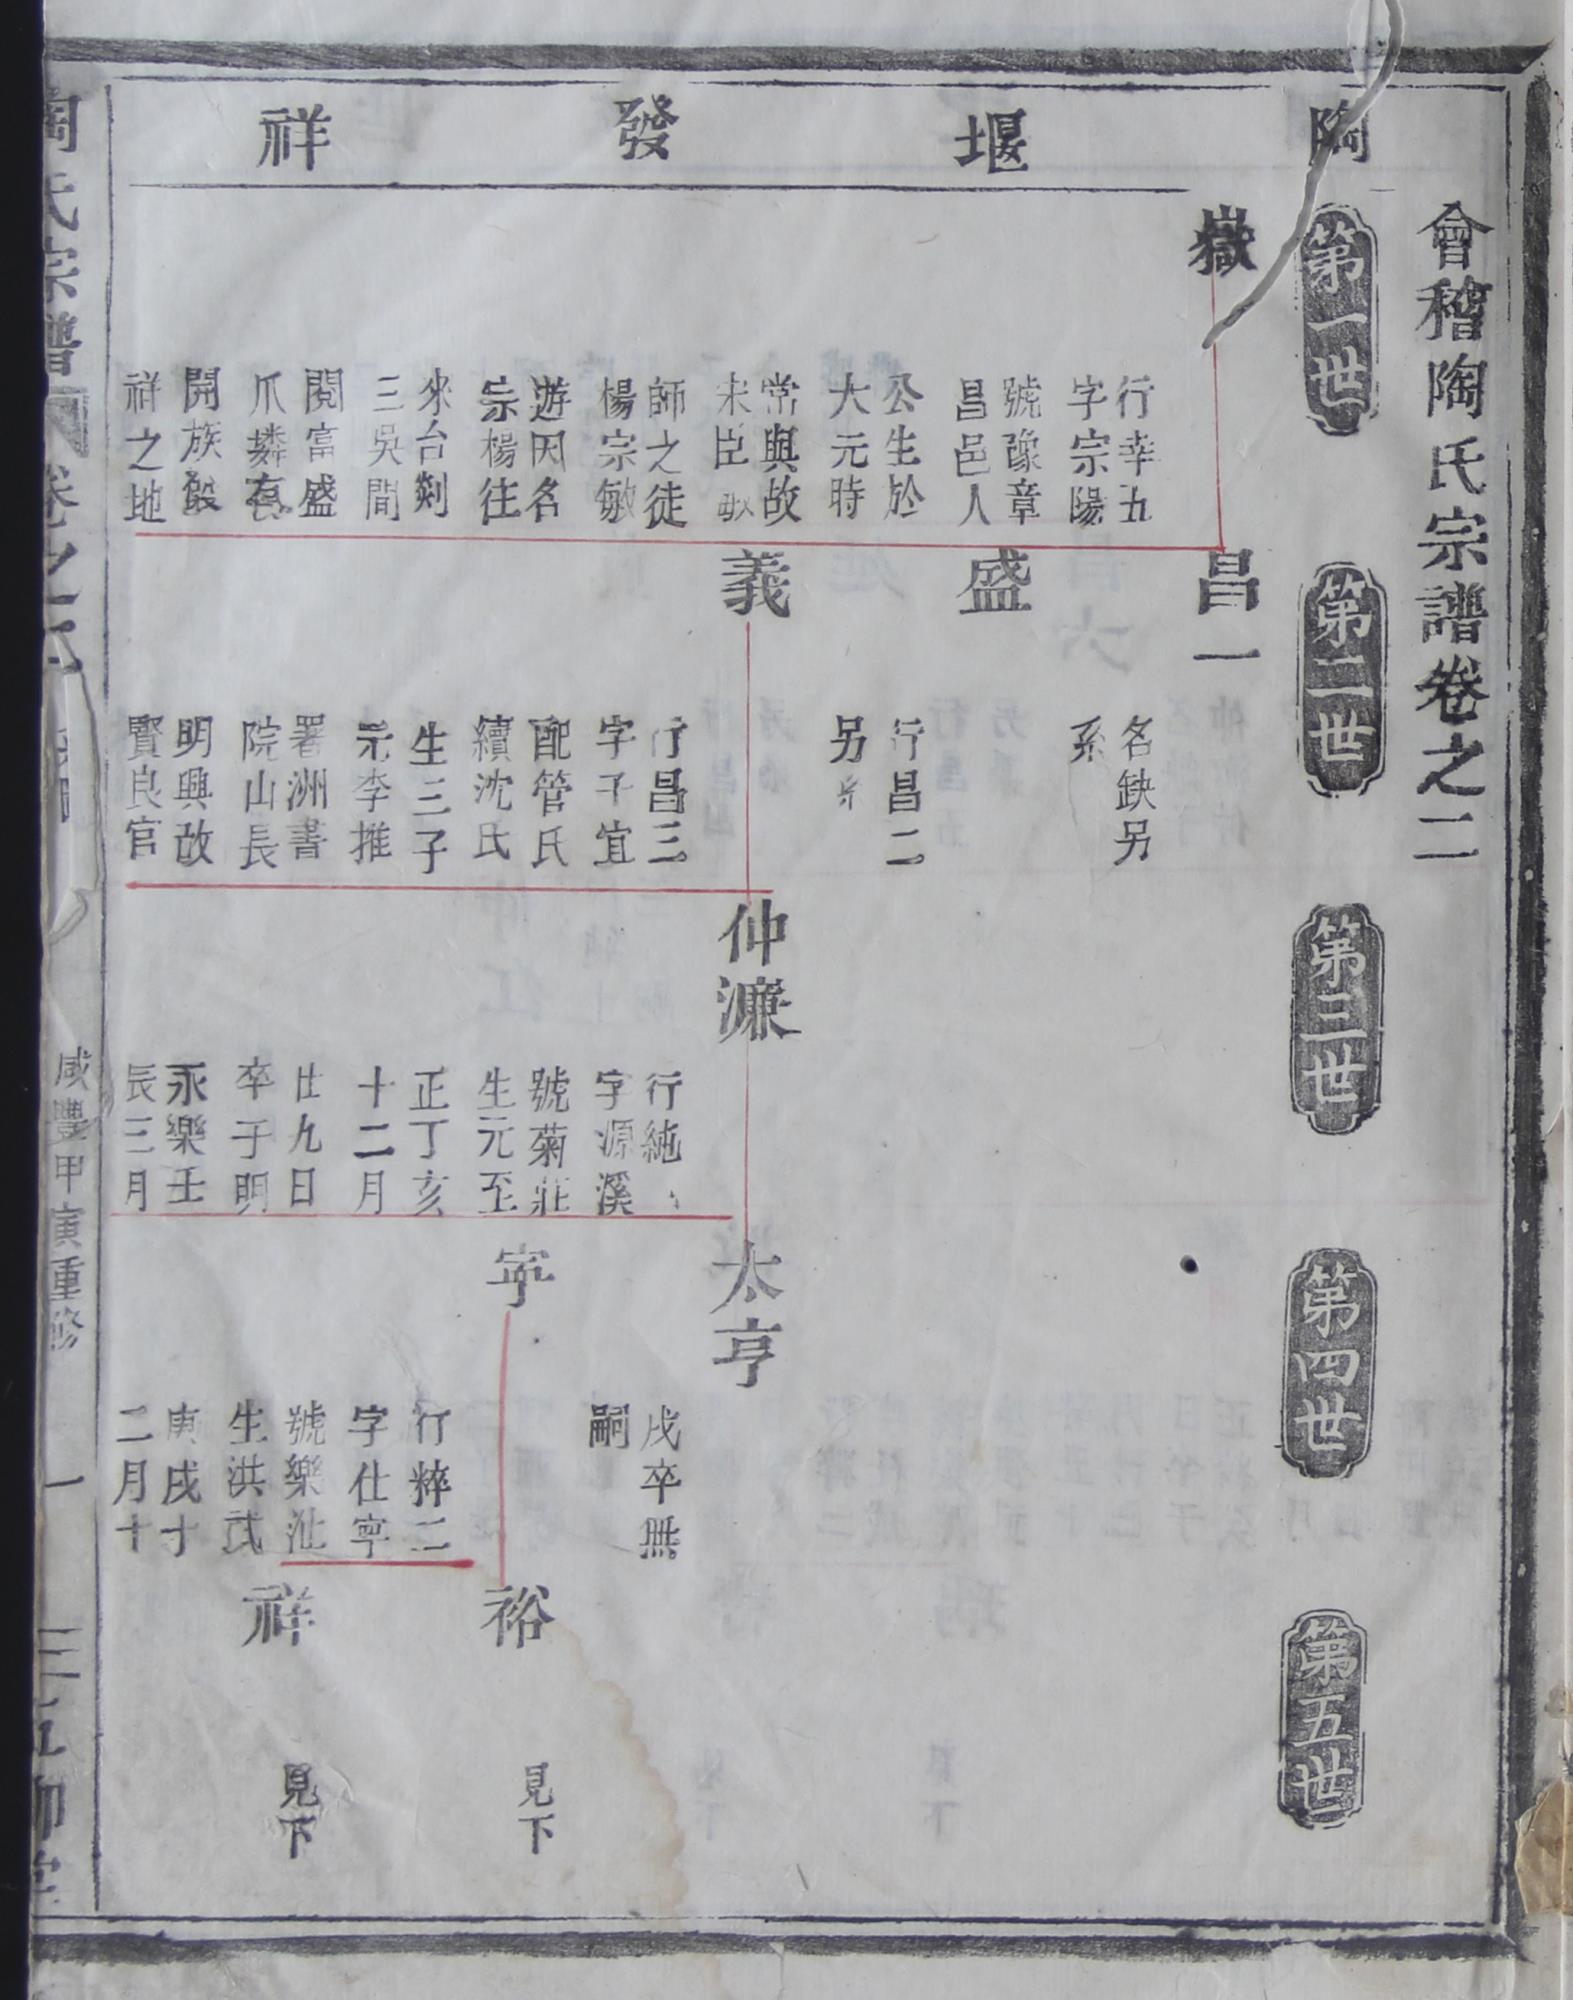 陶堰發祥
會稽陶氏宗譜卷之二
第一世
嶽
行幸五
字宗陽
號豫章
昌邑人
公生於
大元時
常與故
未臣
師之徒
楊宗敏
遊因名
宗楊往
來台剡
三吳間
閱富盛
爪嶙有
開族發
祥之地
第二世
昌一
名缺另
系
盛
行昌二
另系
義
行昌三
字子宜
配管氏
續沈氏
生三子
元李推
署洲書
院山長
明興故
賢良官
第三世
仲濂
行純
字源溪
號菊莊
生元至
正丁亥
十二月
廿九日
卒于明
永樂壬
辰三月
第四世
太亨
戌卒無
嗣
寧
行粹二
字仕寧
號樂沚
生洪武
庚戌十
二月十
第五世
裕
見下
祥
見下
陶氏宗譜 卷之二
咸豐甲寅重修
一